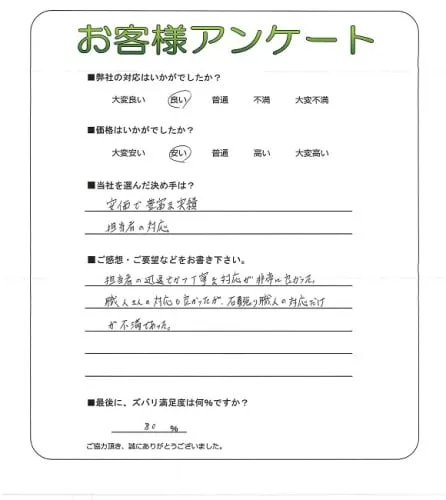 お客様アンケート
■弊社の対応はいかがでしたか？
大変良い 良い 普通 不満 大変不満
■価格はいかがでしたか？
大変安い 安い 普通 高い 大変高い
■当社を選んだ決め手は？
安価で豊富な実績
担当者の対応
■ご感想・ご要望などをお書き下さい。
担当者の迅速でかつ丁寧な対応が非常に良かった。
職人さんの対応も良かったが、石貼り職人の対応だけ
が不満であった。
■最後に、ズバリ満足度は何%ですか？
80 %
ご協力頂き、誠にありがとうございました。